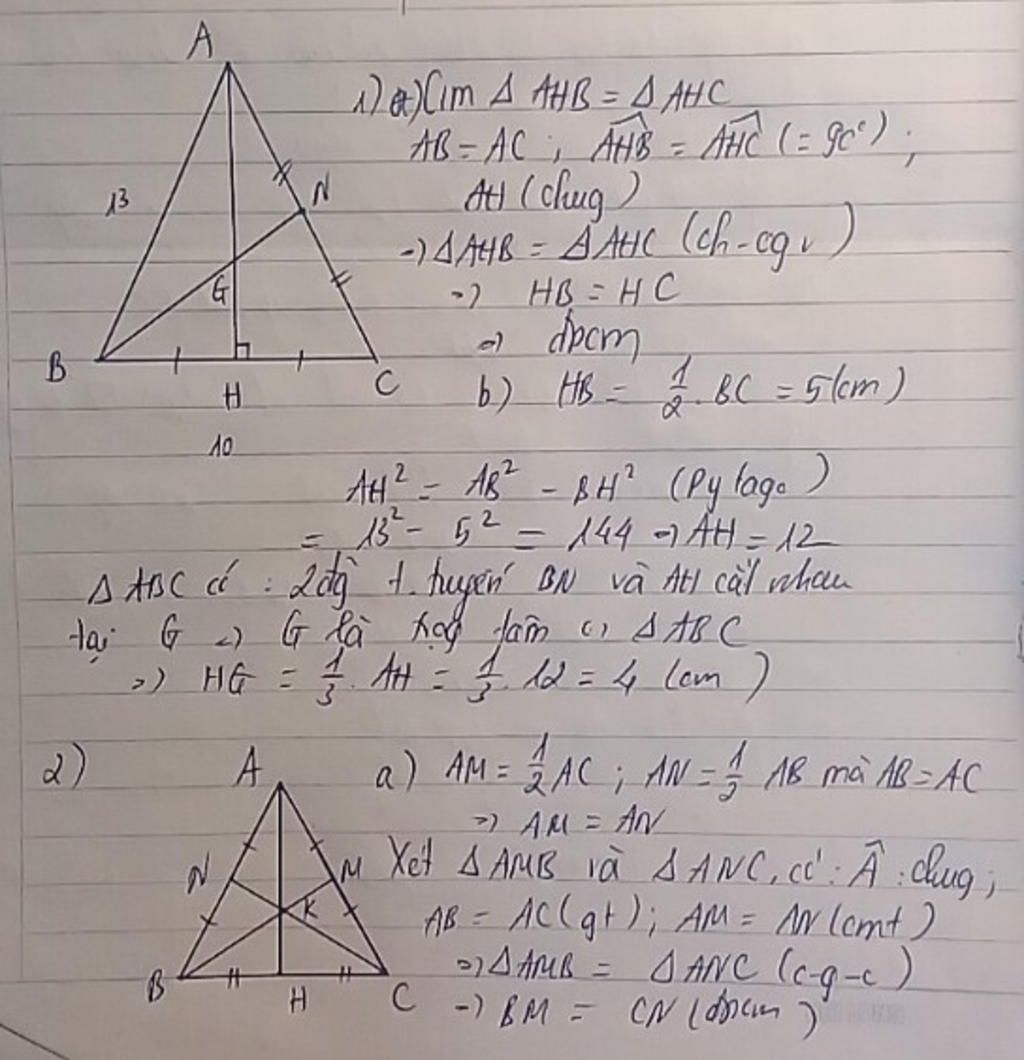 A
1) a) Cm Δ AHB = Δ AHC
AB = AC ; AHB = AHC (= 90°) ;
13
N
AH (chug)
=) Δ AHB = Δ AHC (ch - cgv)
G
=) HB = HC
=) đpcm
B
H
C
b) HB = 1/2 . BC = 5 (cm)
10
AH² = AB² - BH² (Pytago)
= 13² - 5² = 144 =) AH = 12
Δ ABC có : 2 đg t. tuyến BN và AH cắt nhau
tại G =) G là tâm Δ ABC
=) HG = 1/3 . AH = 1/3 . 12 = 4 (cm)
2)
A
a) AM = 1/2 AC ; AN = 1/2 AB mà AB = AC
=) AM = AN
N
M
Xét Δ AMB và Δ ANC, có : Â : chug ;
K
AB = AC (gt) ; AM = AN (cmt)
=) Δ AMB = Δ ANC (c-g-c)
B
H
C
=) BM = CN (đpcm)